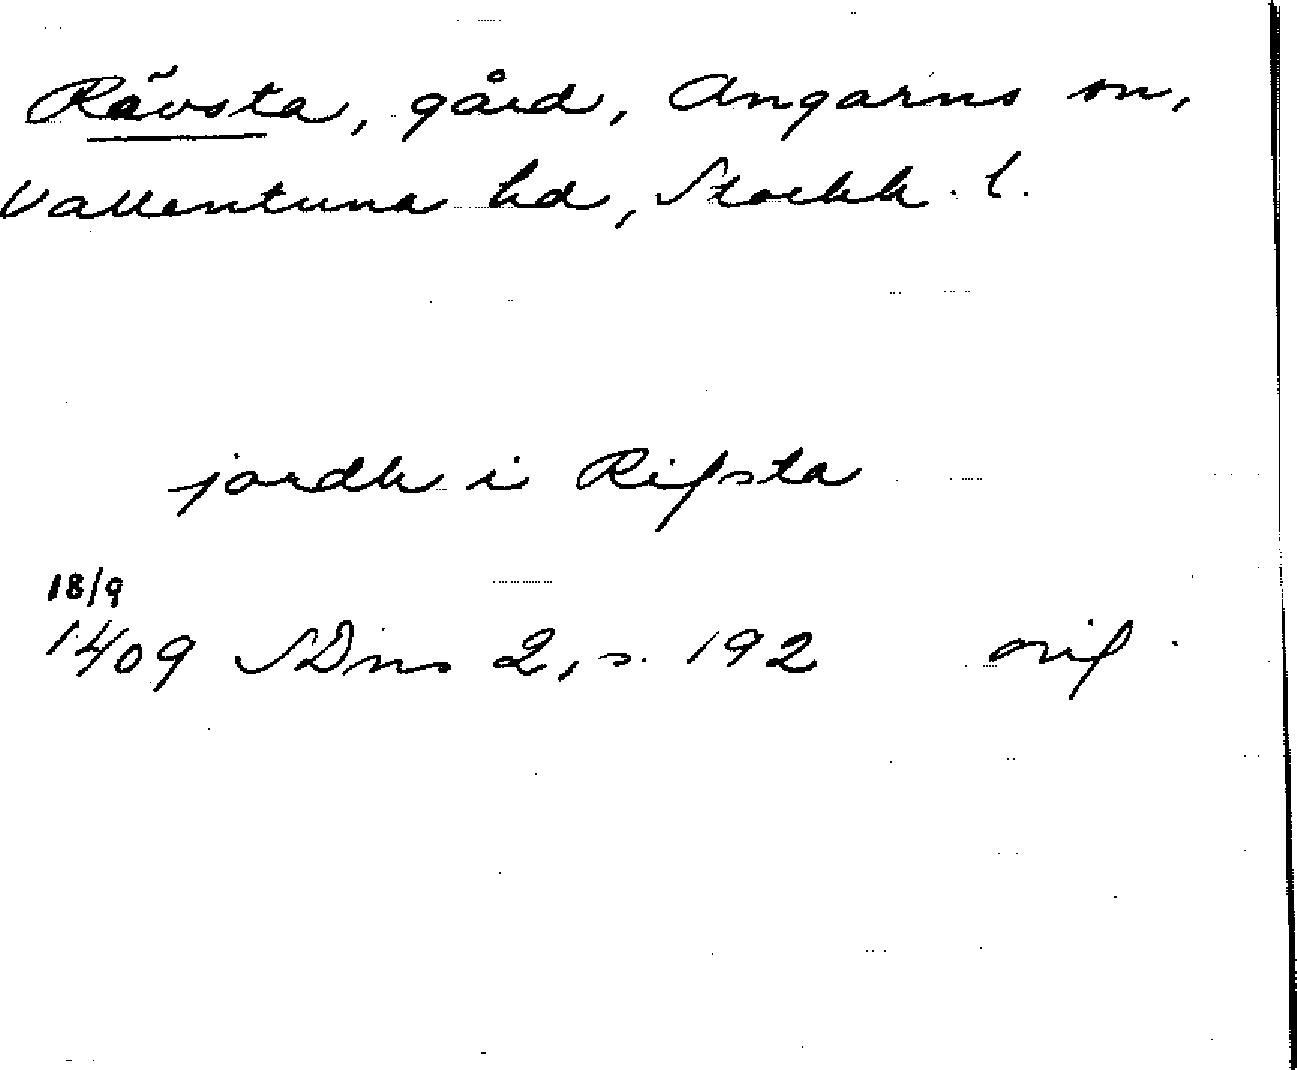 Rävsta, gård, Angarns sn,
Vallentuna hd, Stockh. l.
jordh i Rifsta
18/9
1409 SDns 2, s. 192 orig.